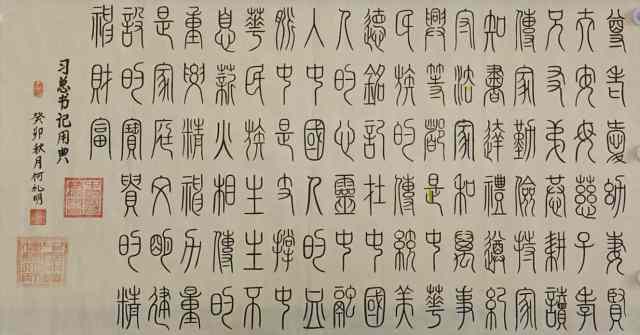 尊老愛幼妻賢
夫安母慈子孝
兄友弟恭耕讀
傳家勤儉持家
知書達禮遵紀
守法家和萬事
興等都是中華
民族的傳統美
德銘記在中國
人的心靈中融
入中國人的血
脈中是支撐中
華民族生生不
息薪火相傳的
重要精神力量
是家庭文明建
設的寶貴的精
神財富
习总书记用典
癸卯秋月何礼明